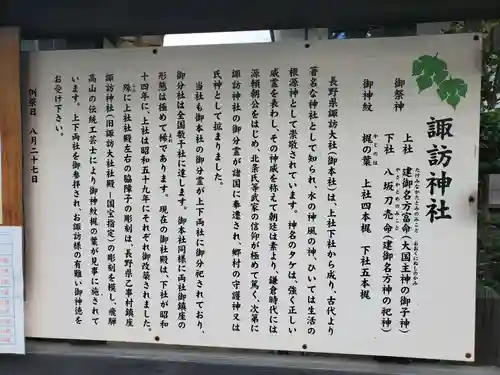 諏訪神社
御祭神　上社　建御名方富命(大国主神の御子神)
たけみなかたとみのみこと　おおくにぬしのかみ
下社　八坂刀売命(建御名方神の妃神)
やさかとめのみこと
御神紋　梶の葉　上社四本梶　下社五本梶
かじのは
長野県諏訪大社(御本社)は、上社下社から成り、古代より
著名な神社として知られ、水の神 風の神、ひいては生活の
根源神として崇敬されています。神名のタケは、強く正しい
威霊を表わし、その神威を称えて朝廷は素より、鎌倉時代には
源頼朝公をはじめ、北条氏等武家の信仰が極めて篤く、次第に
諏訪神社の御分霊が諸国に奉遷され、郷村の守護神又は
氏神として拡まりました。
当社も御本社の御分霊が上下両社に御分祀されており、
御分社は全国数千社に達します。御本社同様に両社御鎮座の
形態は極めて稀であります。現在の御社殿は、下社が昭和
十四年に、上社は昭和五十九年にそれぞれ御改築されました。
殊に上社社殿左右の脇障子の彫刻は、長野県乙事村鎮座
諏訪神社(旧諏訪大社社殿ー国宝指定)の彫刻を模し、飛騨
高山の伝統工芸士により御神紋梶の葉が見事に施されて
います。上下両社を御参拝され、お諏訪様の有難い御神徳を
お受け下さい。
例祭日　八月二十七日